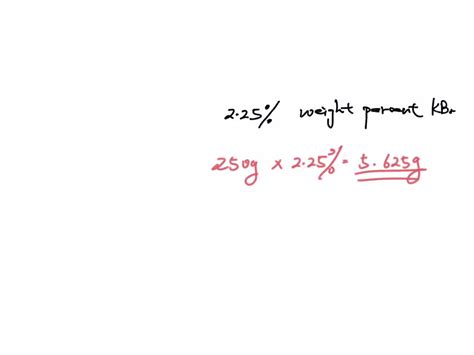 2.25% weight percent KBr
250g x 2.25% = 5.625g